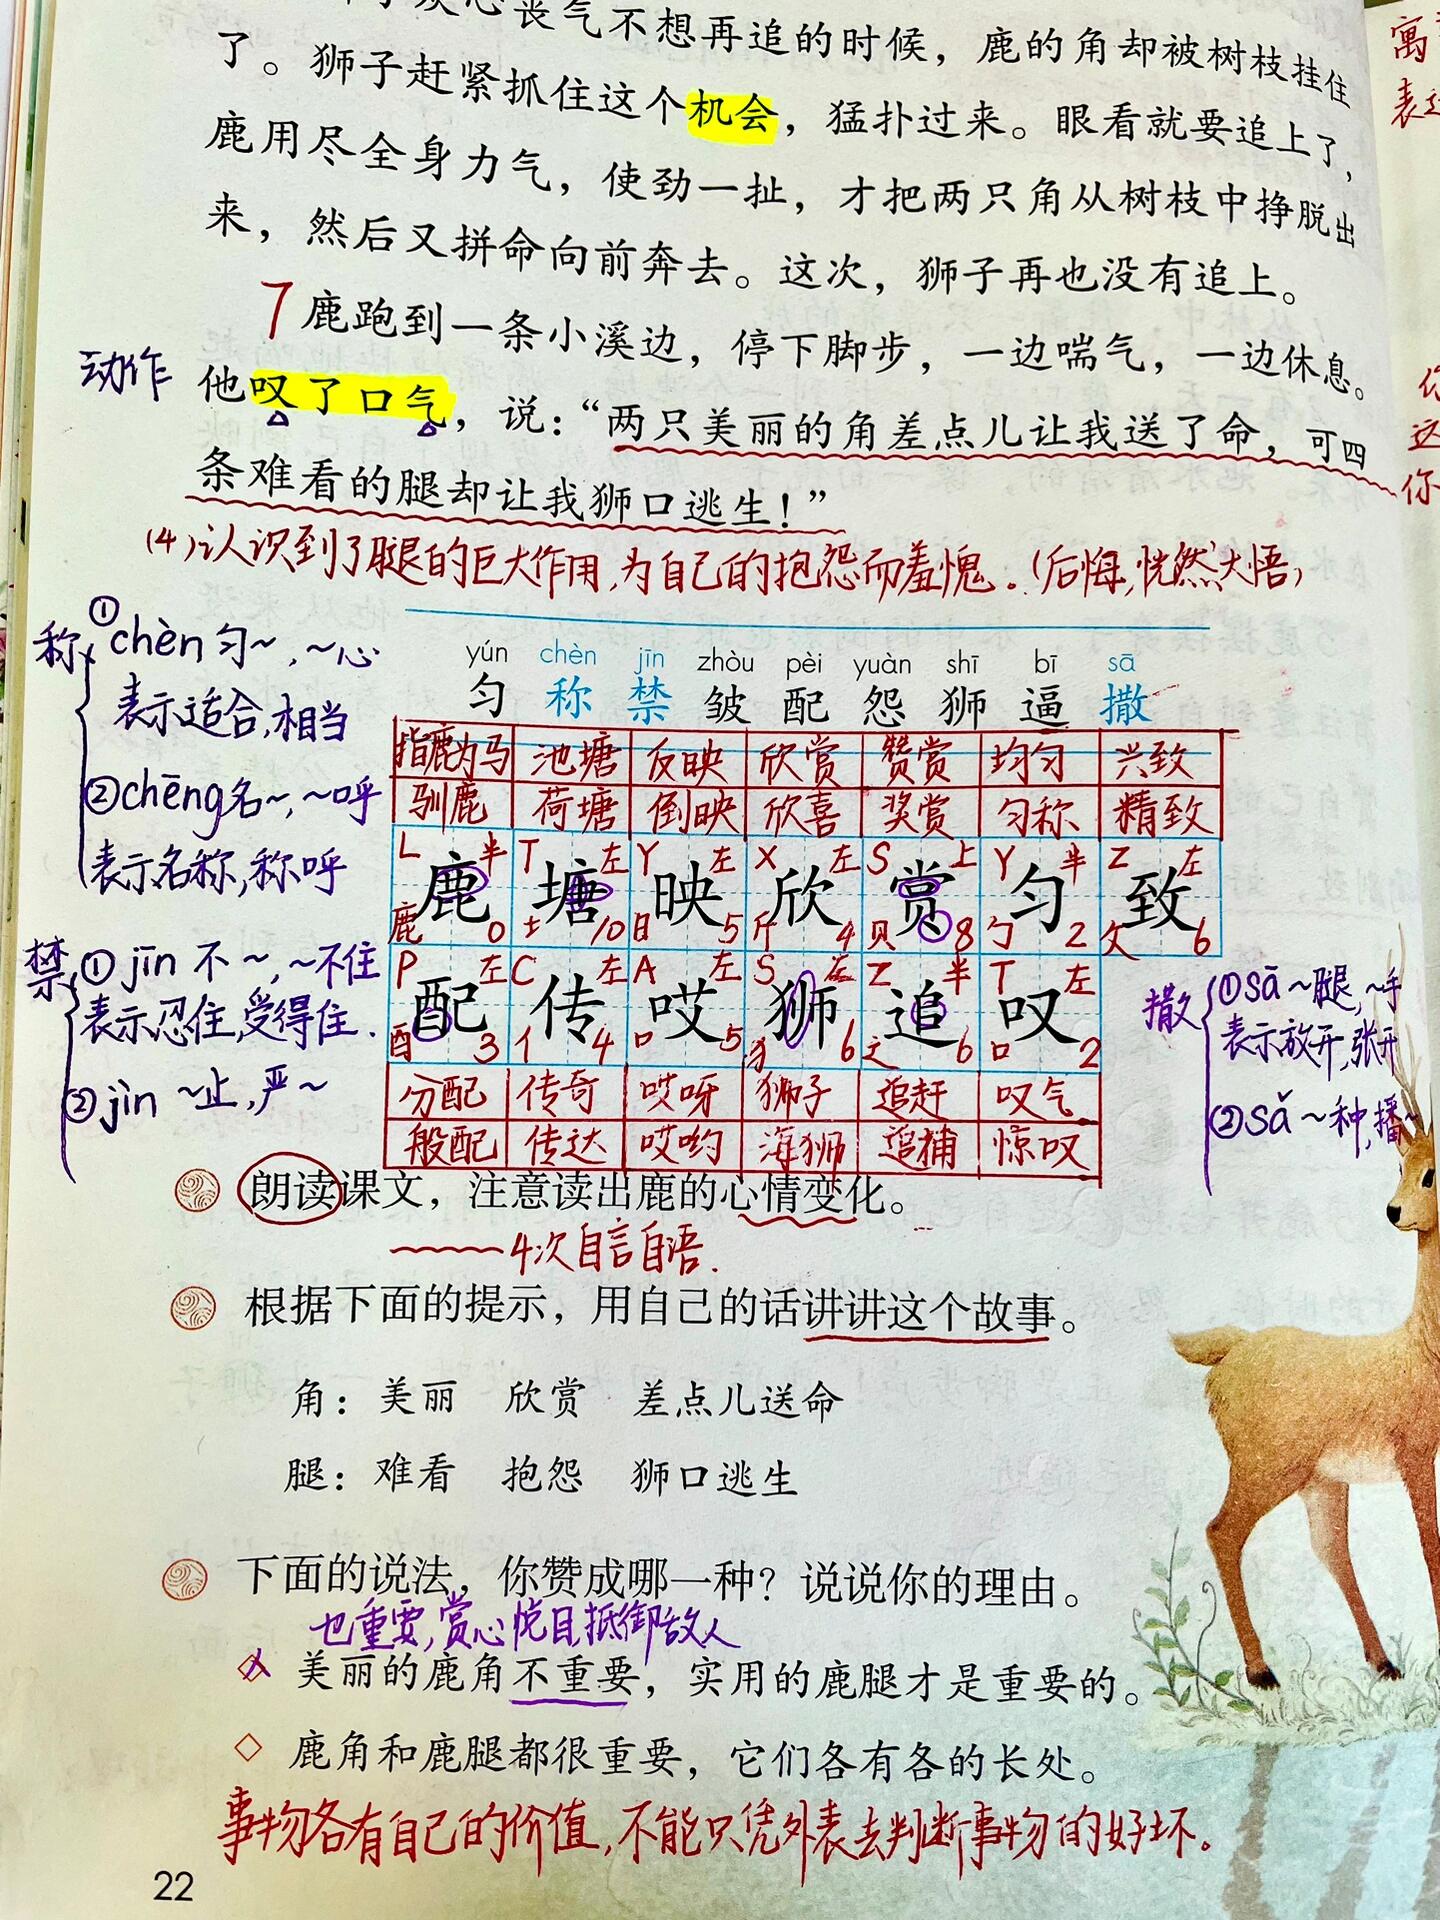 丧气不想再追的时候，鹿的角却被树枝挂住
了。狮子赶紧抓住这个机会，猛扑过来。眼看就要追上了，
鹿用尽全身力气，使劲一扯，才把两只角从树枝中挣脱出
来，然后又拼命向前奔去。这次，狮子再也没有追上。
7 鹿跑到一条小溪边，停下脚步，一边喘气，一边休息。
动作
他叹了口气，说：“两只美丽的角差点儿让我送了命，可四
条难看的腿却让我狮口逃生！”
(4)认识到了腿的巨大作用,为自己的抱怨而羞愧。(后悔,恍然大悟)
称
①chèn 匀~,~心
表示适合,相当
②chēng名~,~呼
表示名称,称呼
禁
①jīn 不~,~不住
表示忍住,受得住.
②jìn ~止,严~
yún chèn jīn zhòu pèi yuàn shī bī sā
匀 称 禁 皱 配 怨 狮 逼 撒
指鹿为马 池塘 反映 欣赏 赞赏 均匀 兴致
驯鹿 荷塘 倒映 欣喜 奖赏 匀称 精致
L 半 T 左 Y 左 X 左 S 上 Y 半 Z 左
鹿 塘 映 欣 赏 匀 致
鹿 0 土 10 日 5 斤 4 贝 8 勹 2 攵 6
P 左 C 左 A 左 S 左 Z 半 T 左
配 传 哎 狮 追 叹
酉 3 亻 4 口 5 犭 6 辶 6 口 2
分配 传奇 哎呀 狮子 追赶 叹气
般配 传达 哎哟 海狮 追捕 惊叹
撒
①sā ~腿,~手
表示放开,张开
②sǎ ~种,播~
朗读课文，注意读出鹿的心情变化。
4次自言自语.
根据下面的提示，用自己的话讲讲这个故事。
角：美丽 欣赏 差点儿送命
腿：难看 抱怨 狮口逃生
下面的说法，你赞成哪一种？说说你的理由。
也重要,赏心悦目,抵御敌人
美丽的鹿角不重要，实用的鹿腿才是重要的。
鹿角和鹿腿都很重要，它们各有各的长处。
事物各有自己的价值,不能只凭外表去判断事物的好坏。
22
寓
表达
这
你